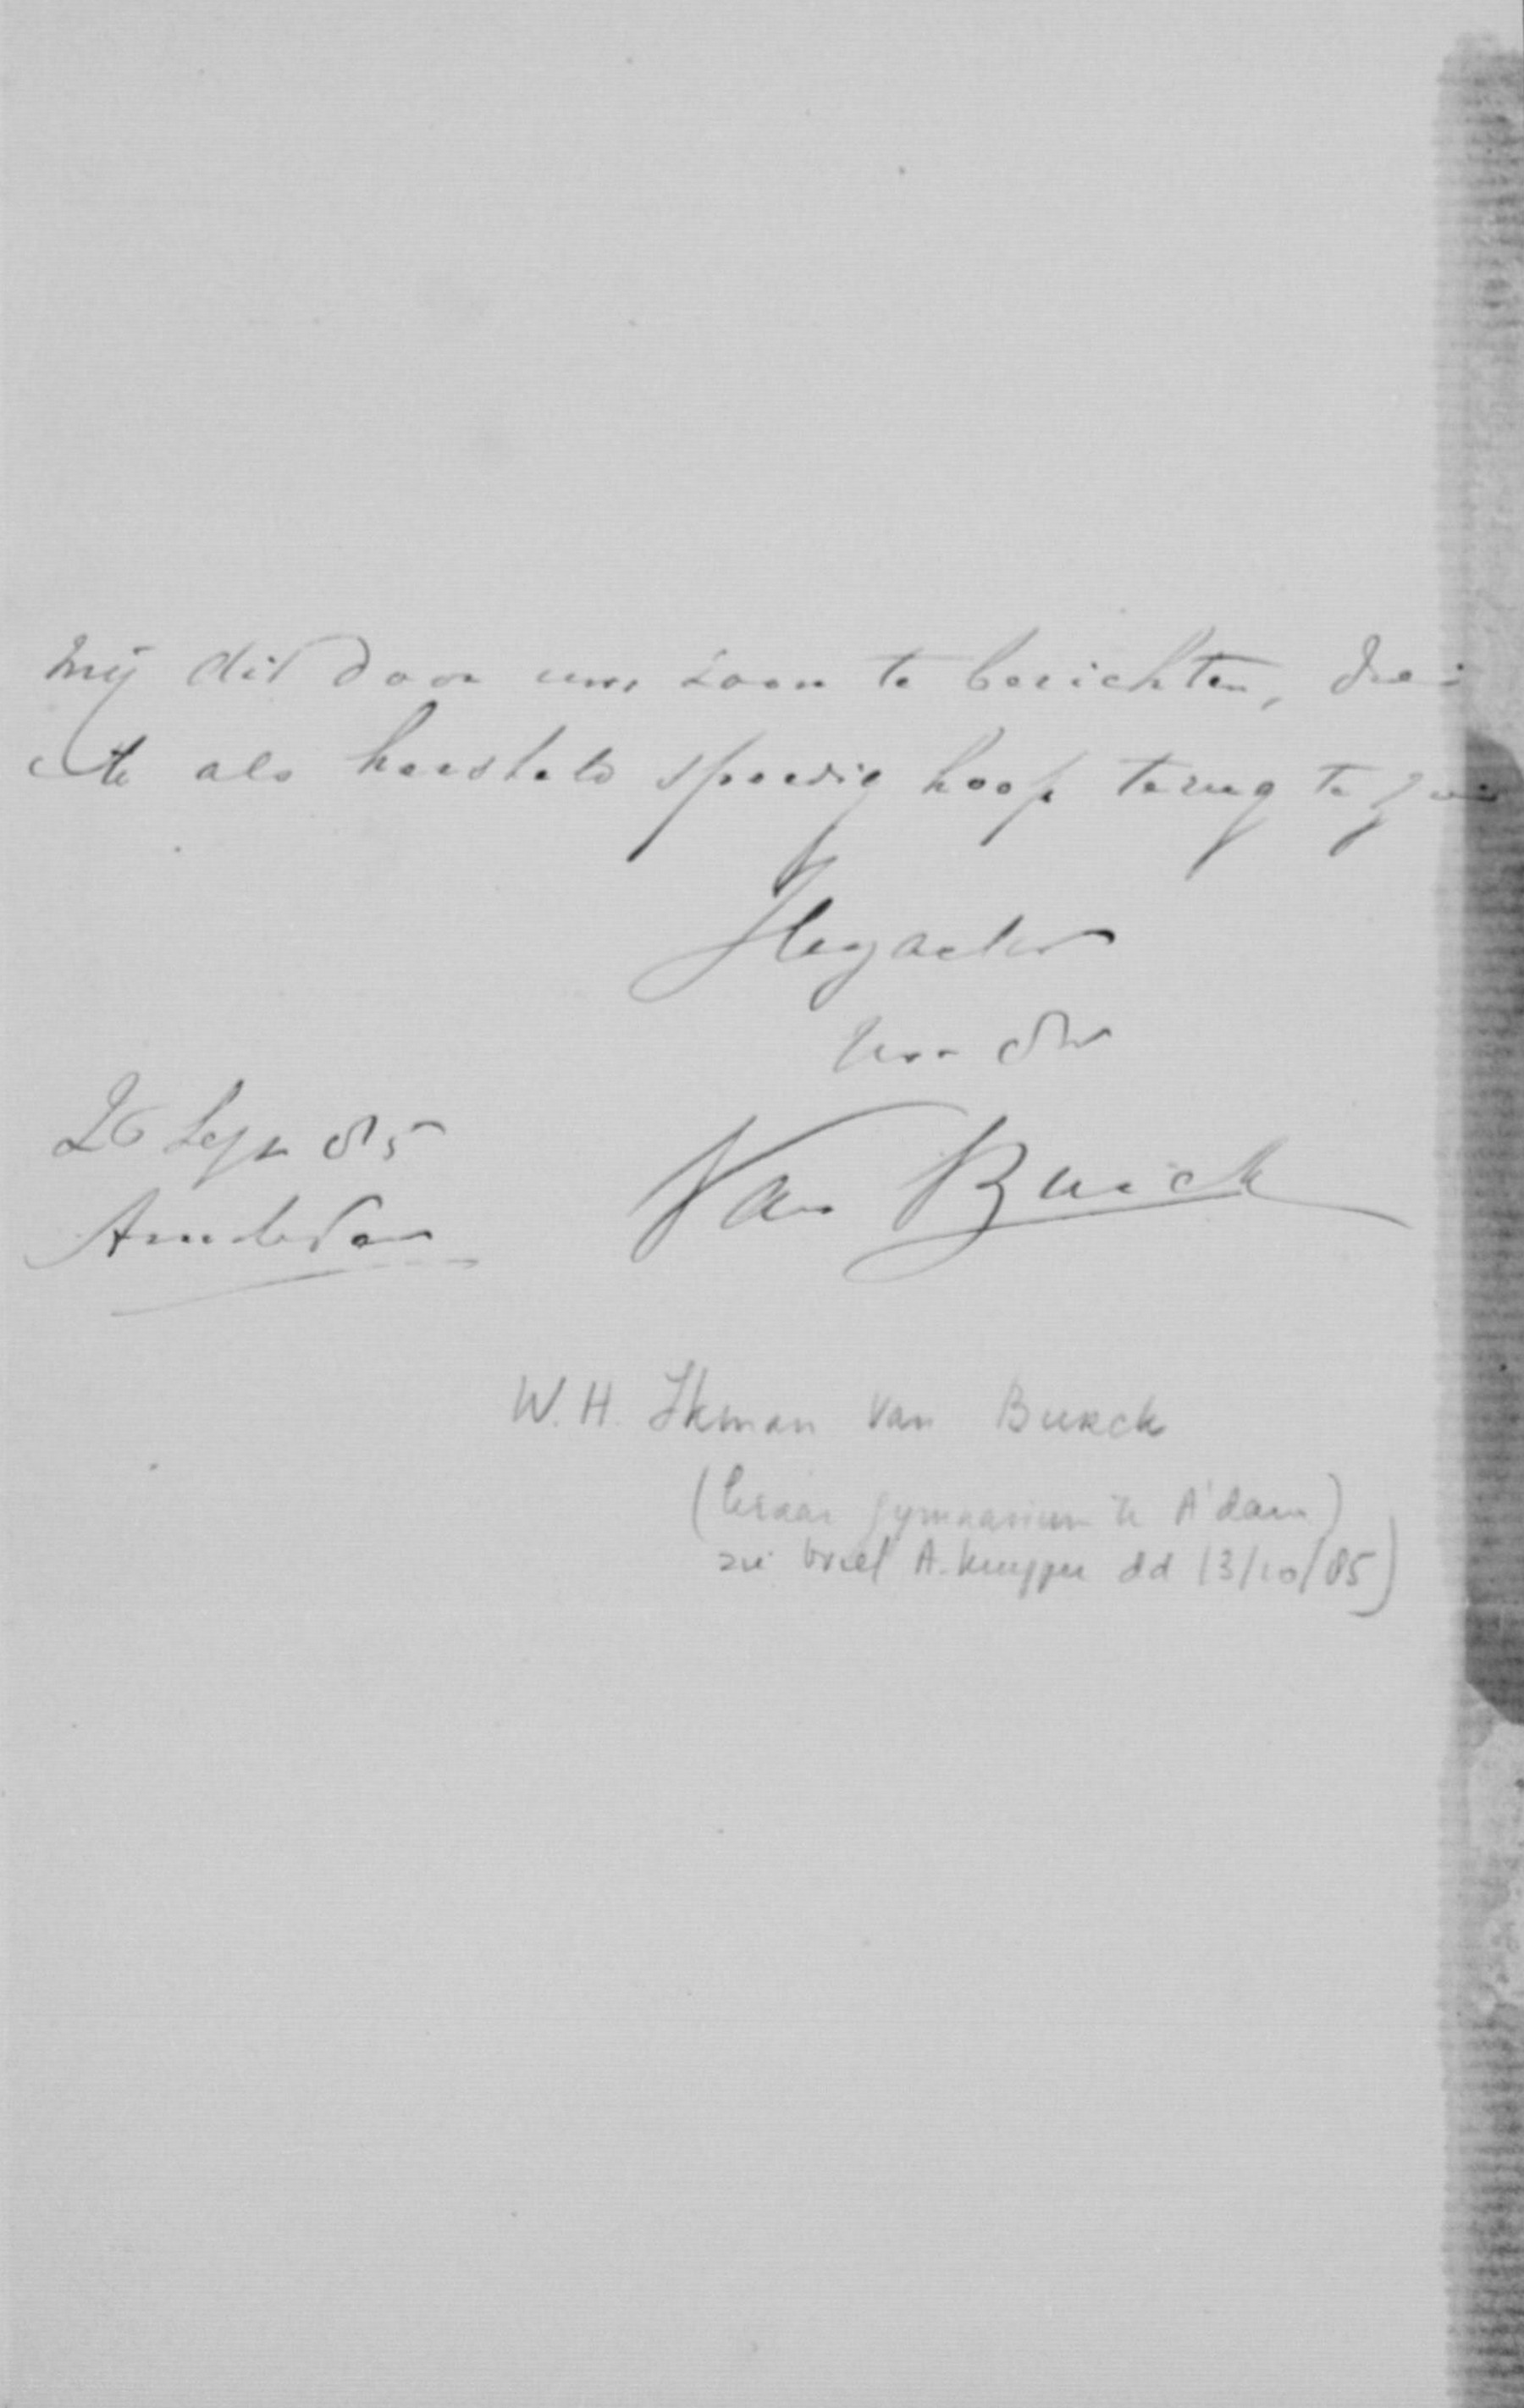 mij dit door uw zoon te berichten, dien
ik als hersteld spoedig hoop terug te zien
Hoogachtend
Uw dw
26 Sept 85
Van Burck
Amsterdam
W.H. Ikman van Burck
(leraar gymnasium te A'dam)
zie brief A. Kuyper dd 13/10/85)